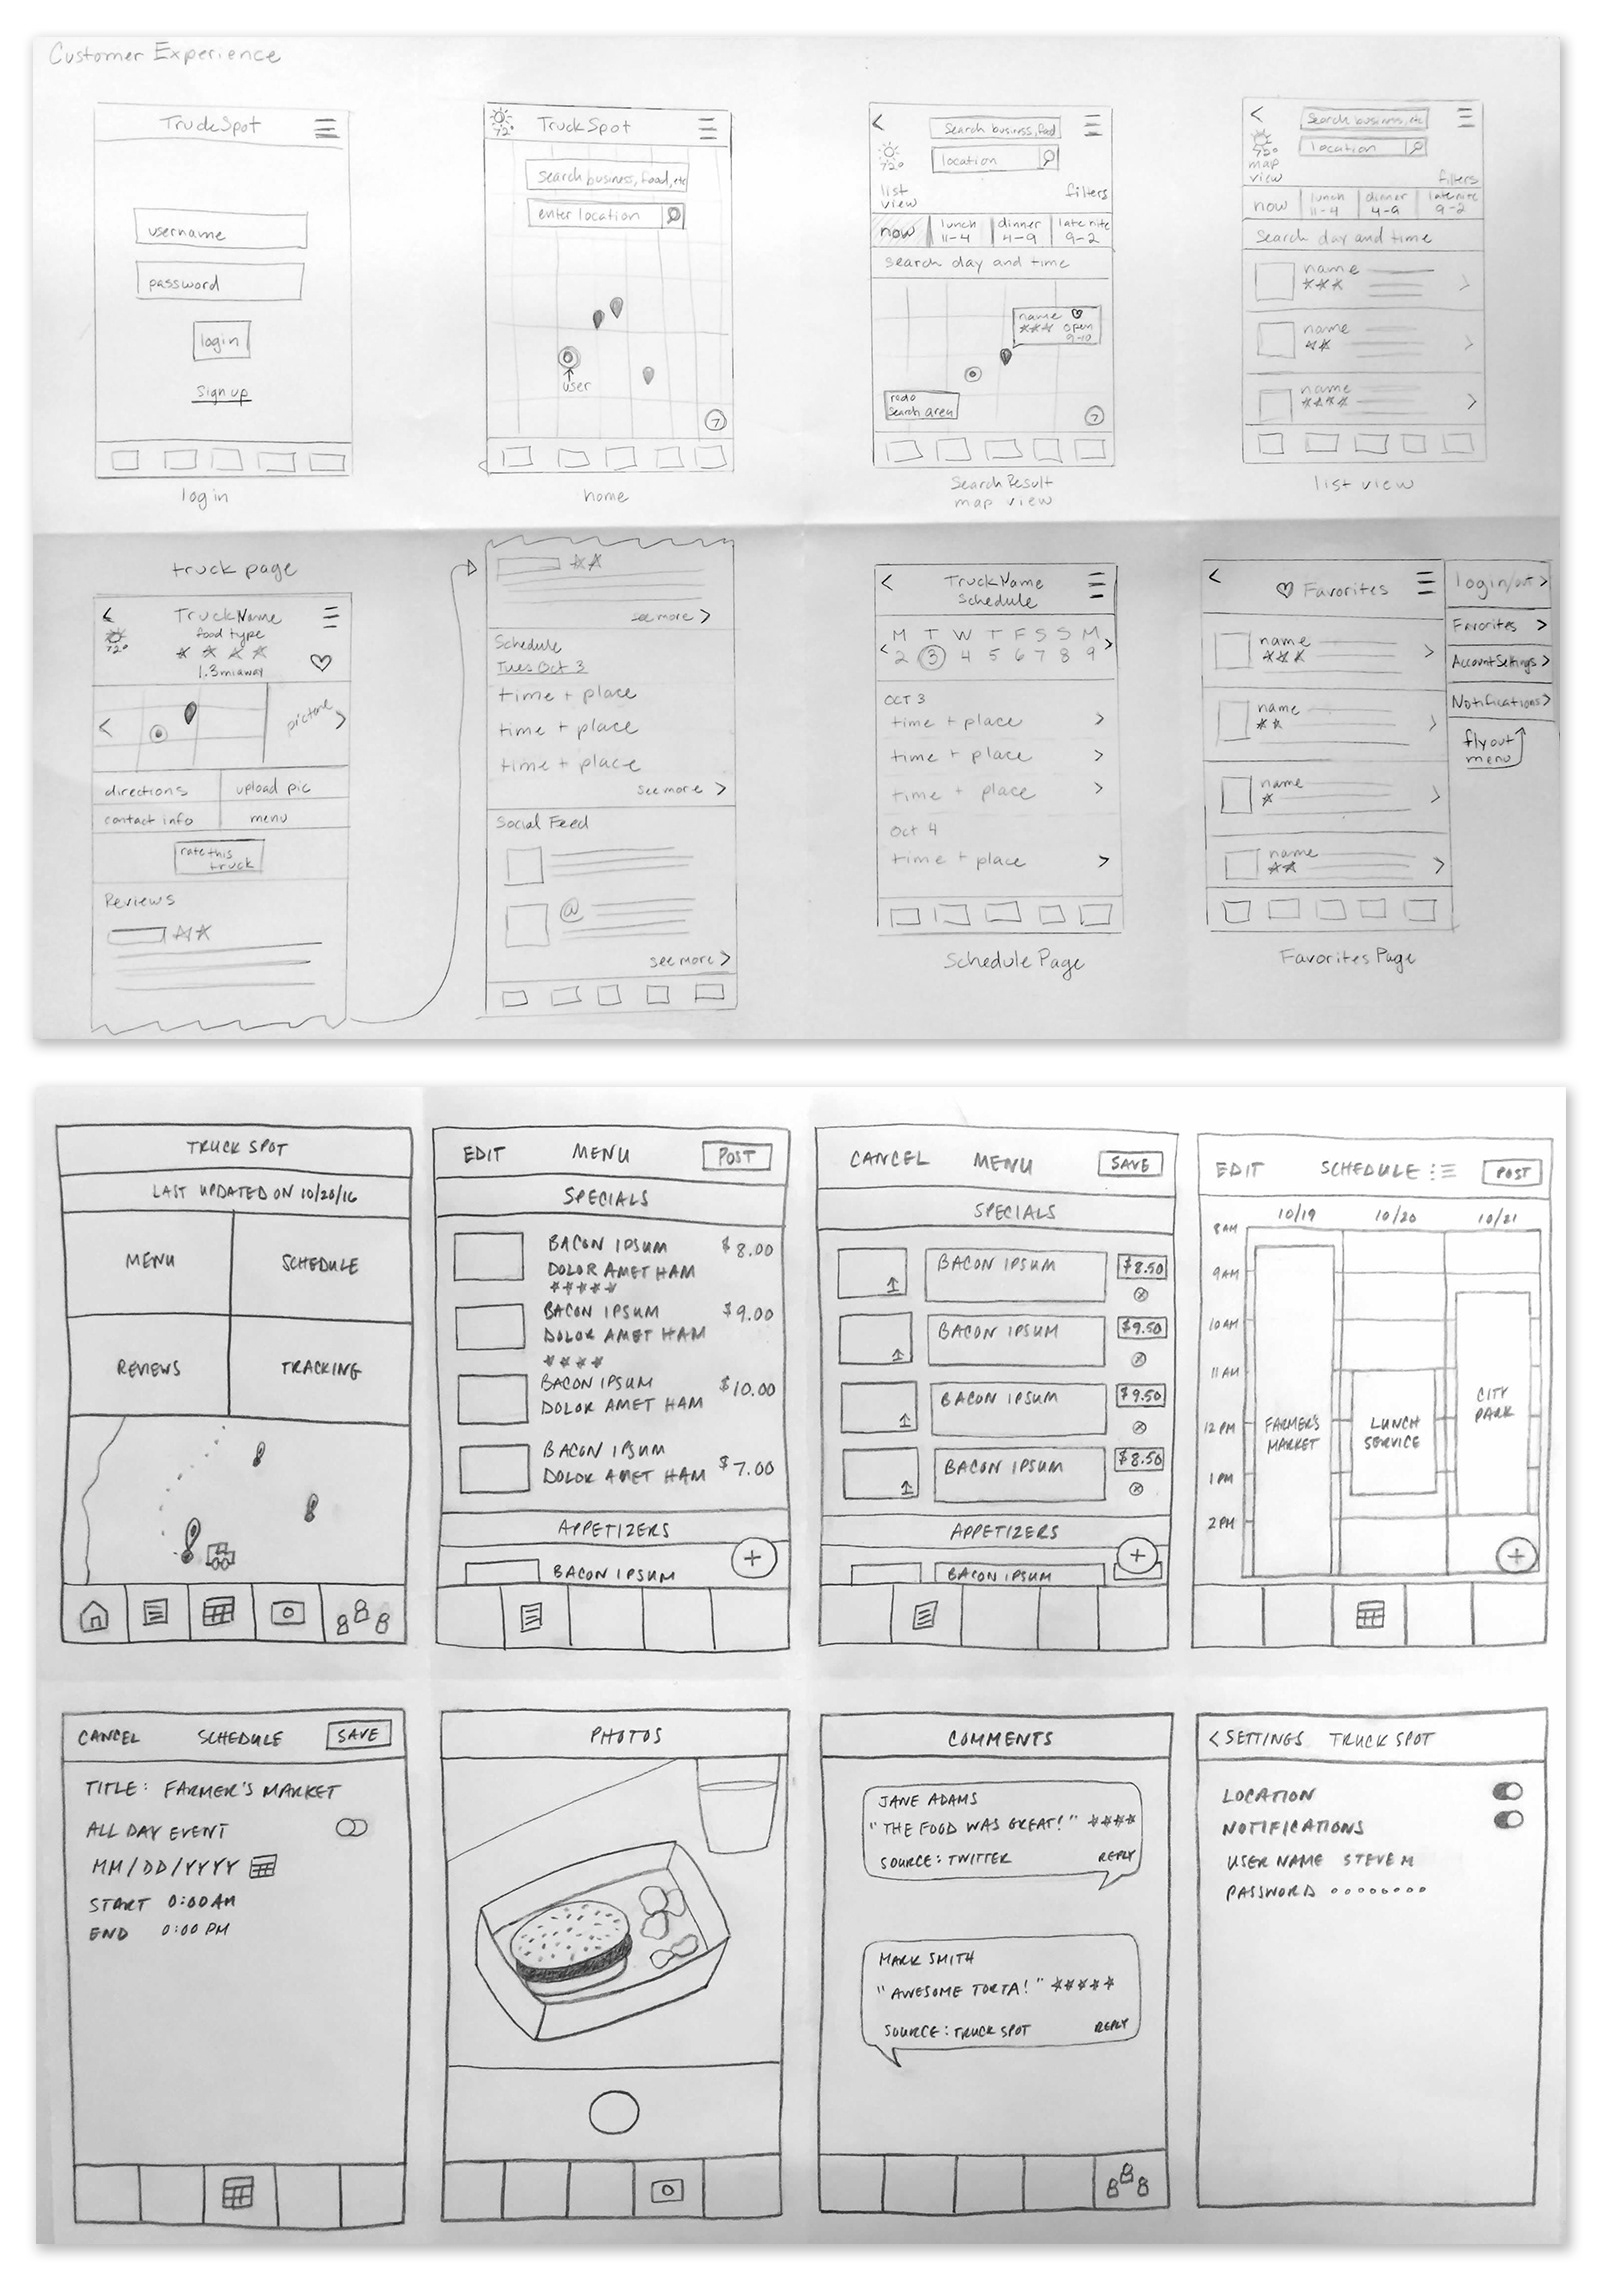 Customer Experience
TruckSpot
username
password
login
Sign up
login
72°
TruckSpot
search business, food, etc
enter location
user
7
home
Search business, food
location
72°
list view
filters
now
lunch 11-4
dinner 4-9
late nite 9-2
search day and time
name
open 9-10
redo search area
7
Search Result
map view
Search business, etc
location
75°
map view
filters
now
lunch 11-4
dinner 4-9
late nite 9-2
Search day and time
name
name
name
list view
truck page
TruckName
food type
72°
1.3 mi away
picture
directions
upload pic
contact info
menu
rate this truck
Reviews
see more >
Schedule
Tues Oct 3
time + place
time + place
time + place
see more >
Social Feed
@
see more >
TruckName
Schedule
M T W T F S S M
2 3 4 5 6 7 8 9
OCT 3
time + place >
time + place >
time + place >
Oct 4
time + place >
Schedule Page
Favorites
name
name
name
name
Favorites Page
login/out >
Favorites >
Account Settings >
Notifications >
fly out menu
TRUCK SPOT
LAST UPDATED ON 10/20/16
MENU
SCHEDULE
REVIEWS
TRACKING
EDIT MENU POST
SPECIALS
BACON IPSUM $8.00
DOLOR AMET HAM
BACON IPSUM $9.00
DOLOR AMET HAM
BACON IPSUM $10.00
DOLOR AMET HAM
BACON IPSUM
DOLOR AMET HAM $7.00
APPETIZERS
BACON IPSUM
+
CANCEL MENU SAVE
SPECIALS
BACON IPSUM $8.50
BACON IPSUM $9.50
BACON IPSUM $9.50
BACON IPSUM $8.50
APPETIZERS
BACON IPSUM
+
EDIT SCHEDULE POST
10/19 10/20 10/21
8AM
9AM
10AM
11AM
12PM
1PM
2PM
FARMER'S MARKET
LUNCH SERVICE
CITY PARK
+
CANCEL SCHEDULE SAVE
TITLE: FARMER'S MARKET
ALL DAY EVENT
MM/DD/YYYY
START 0:00AM
END 0:00 PM
PHOTOS
COMMENTS
JANE ADAMS
"THE FOOD WAS GREAT!" ****
SOURCE: TWITTER REPLY
MARK SMITH
"AWESOME TORTA!" *****
SOURCE: TRUCK SPOT REPLY
< SETTINGS TRUCK SPOT
LOCATION
NOTIFICATIONS
USER NAME STEVE M
PASSWORD